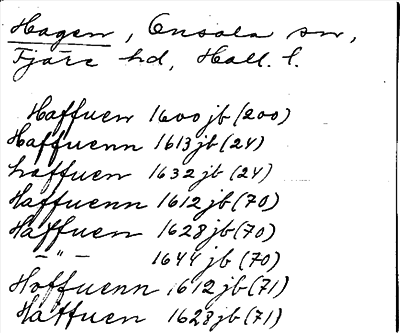 Hagen, Onsala sn,
Fjäre hd, Hall. l.
Haffuen 1600 jb (200)
Haffuenn 1613 jb (24)
haffuen 1632 jb (24)
Haffuenn 1612 jb (70)
Haffuen 1628 jb (70)
– " – 1644 jb (70)
Hoffuenn 1612 jb (71)
Haffuen 1628 jb (71)